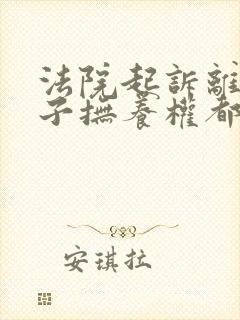 法院起訴離
子撫養權都
安琪拉